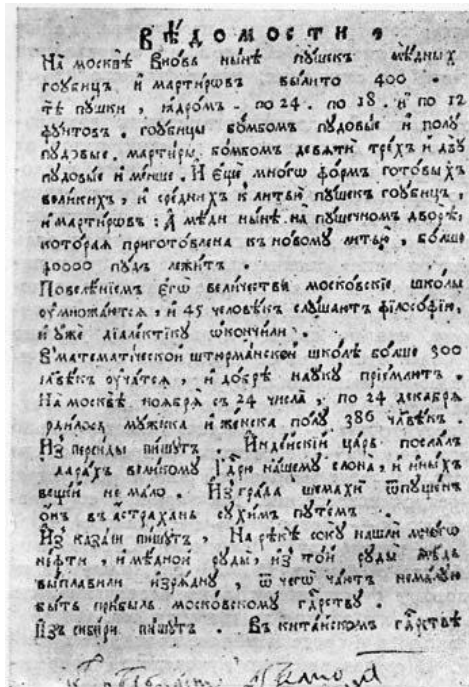 вѣдомости
На москвѣ вновь нынѣ пушек мѣдных
гоубиц и мартировъ вылито 400 .
тѣ пушки , ядромъ . по 24 . по 18 . и по 12
фунтовъ . гоубицы бомбомъ пудовые и полу
пудовые . мартиры бомбомъ девяти трех и двѹ
пудовые и менше . И еще многѡ форм готовых
великих , и средних к литью пушек гоубиц ,
и мартировъ : А меди нынѣ на пушечном дворѣ ,
которая приготовлена к новому литью , болше
40000 пудъ лежит .
Повелѣнїем егѡ величества московскїе школы
оумножаютсѧ , и 45 человѣкъ слушают фїлософїю ,
и уже дїалектїку ѡкончили .
В математїческой штюрманской школѣ болше 300
члвѣкъ оучатсѧ , и добрѣ науку прїемлютъ .
На москвѣ ноября съ 24 числа , по 24 декабря
родилось мужска и женска полу 386 члвѣкъ .
Из персиды пишут . Индѣйскїй царь послалъ
в дарах великому Гдрю нашему слона , и иных
вещей не мало . Из града шемахи ѿпущен
онъ в астрахань сухимъ путем .
Из казани пишут , На рѣкѣ соку нашли многѡ
нефти , и мѣдной руды , из той руды мѣдь
выплавили изрядну , ѿ чегѡ чают немалую
быть прибыль московскому гдрству .
Изъ сибири пишут . Въ китайском гдрствѣ